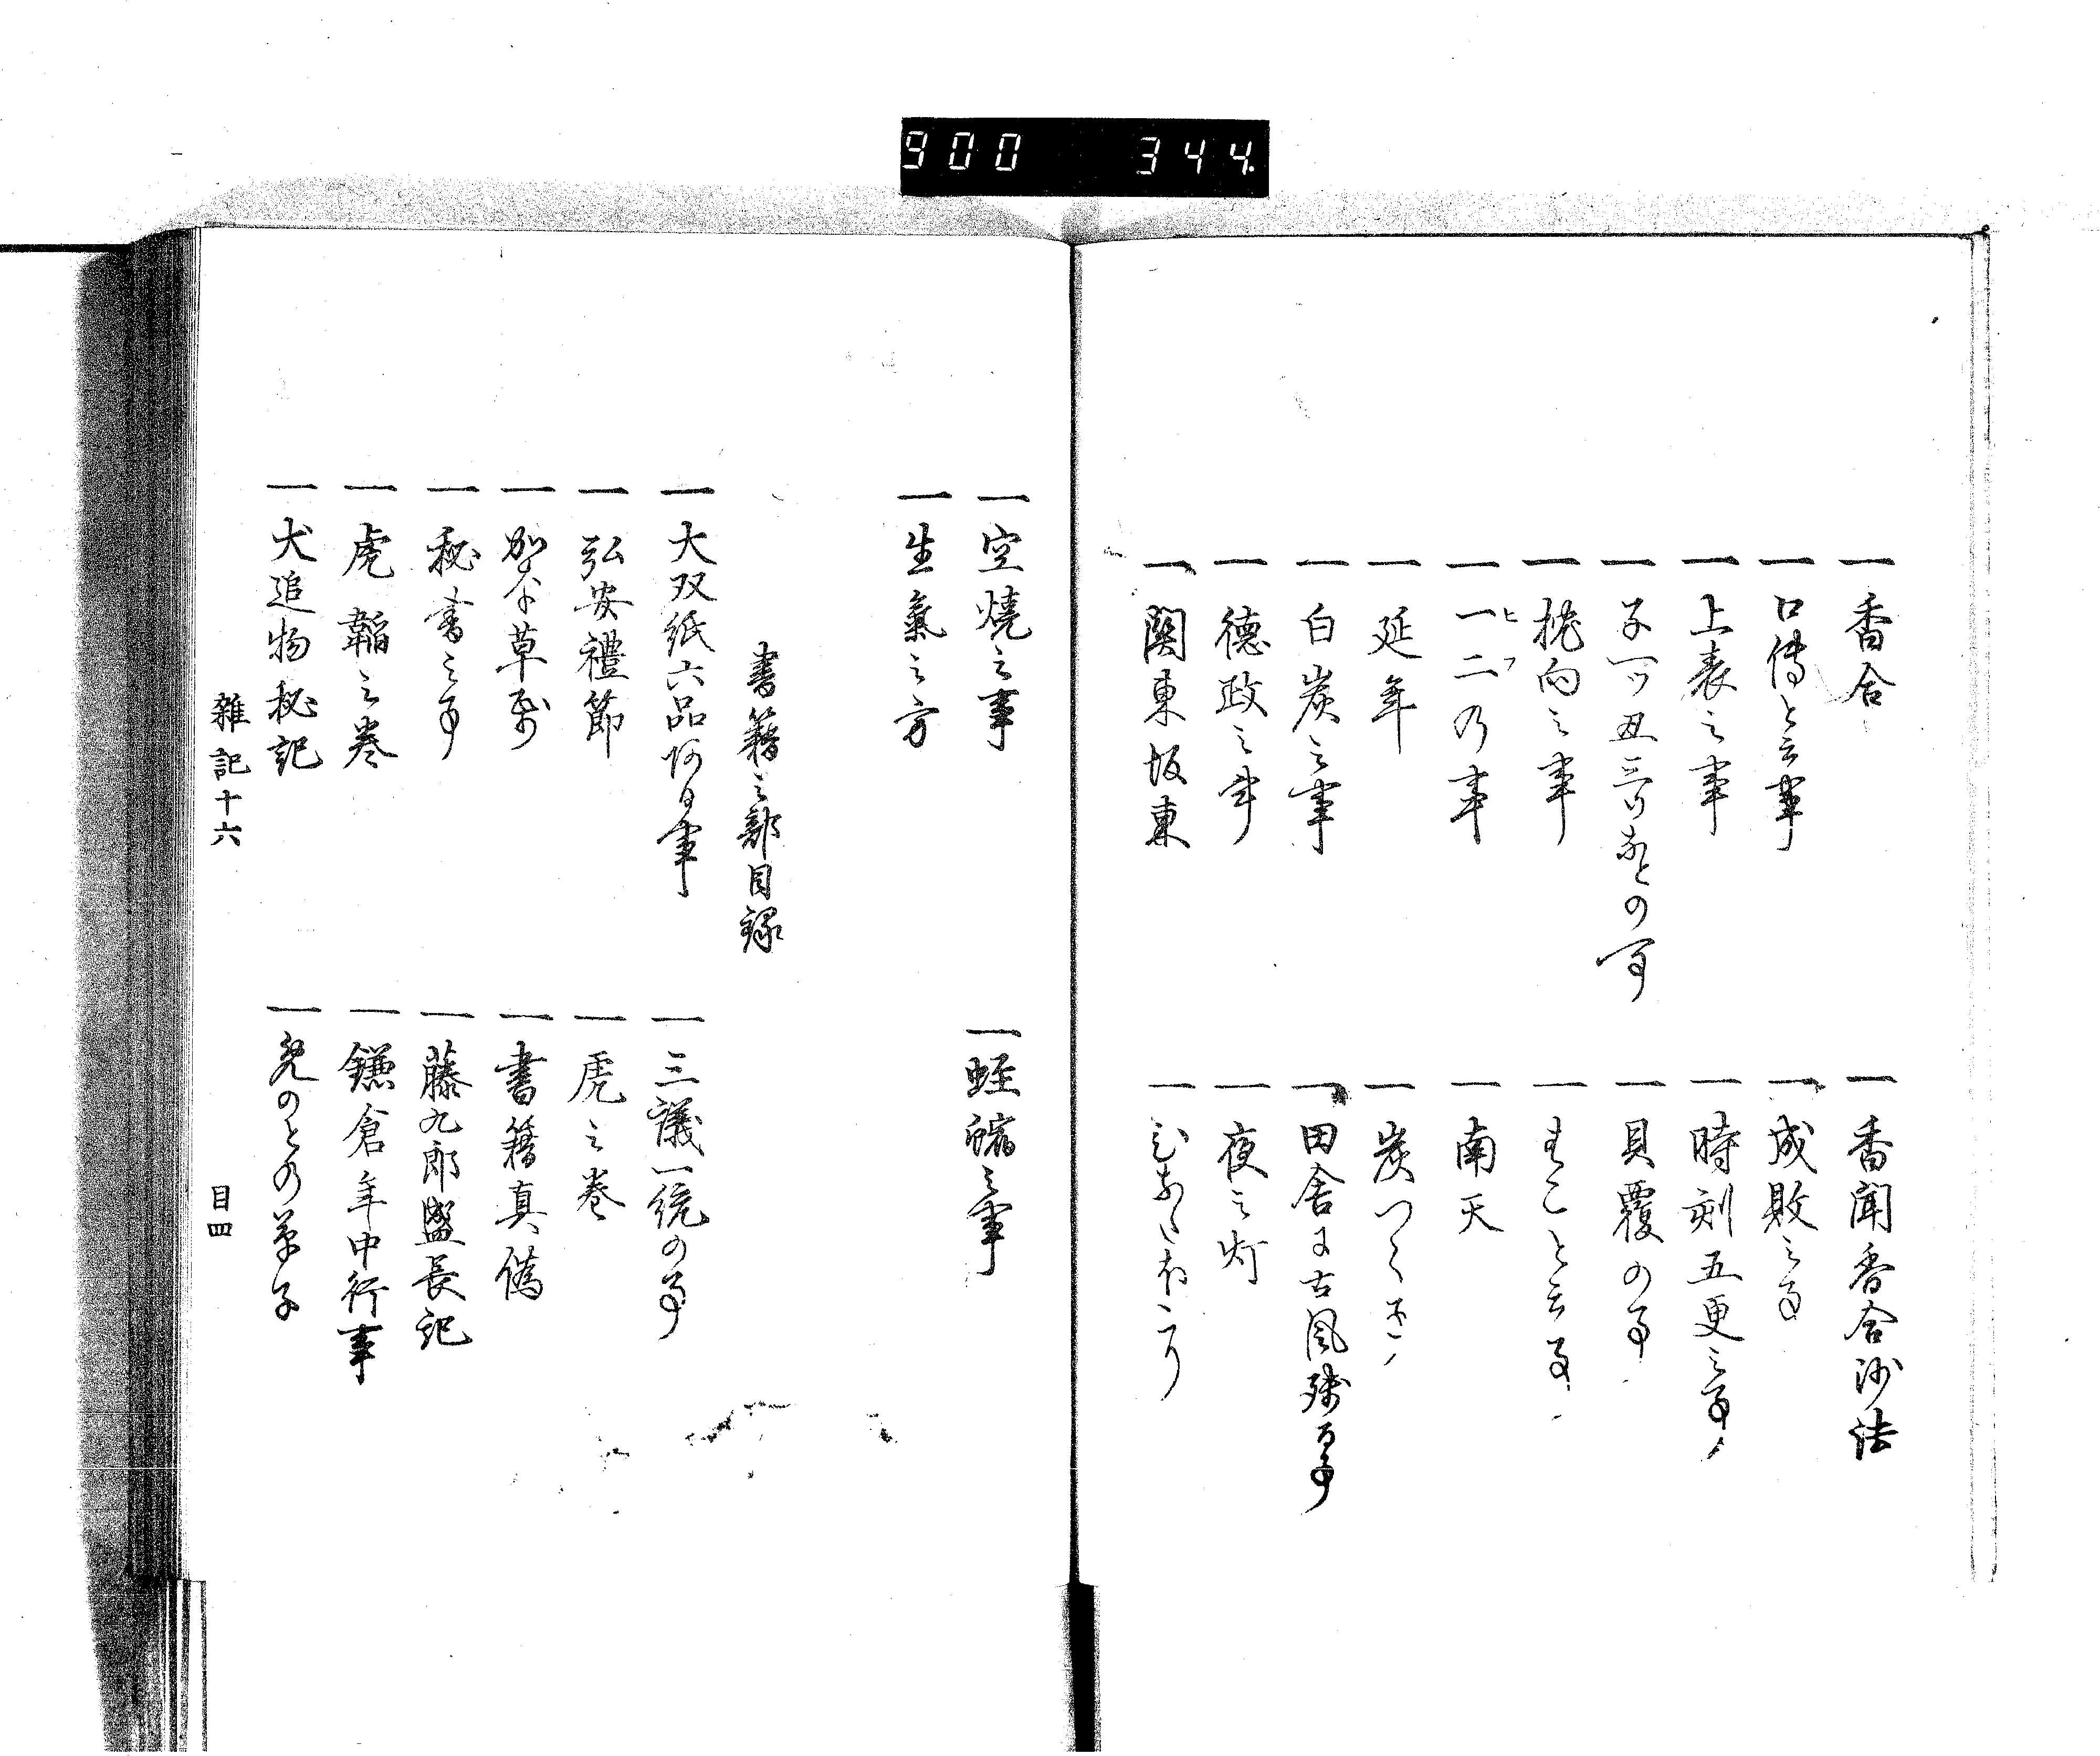 900 344.
一香合
一香聞香合沙法
一口傳と云事
一成敗之事
一上表之事
一時刻五更之事
一子一ツ丑三ツなとの事
一貝覆の事
一枕向之事
一すこと云事
一一二の事
ヒフ
一南天
一延年
一炭つくさ
一白炭之事
一田舎に古風残る事
一徳政之事
一夜之灯
一関東坂東
一空焼之事
一蛭縮之事
一生氣之方
書籍之部目録
一大双紙六品有る事
一三議一統の事
一弘安禮節
一虎之巻
一賀茂草子
一書籍真偽
一秘書之事
一藤九郎盛長記
一虎韜之巻
一鎌倉年中行事
一犬追物秘記
一兒のとの草子
雑記十六
目四